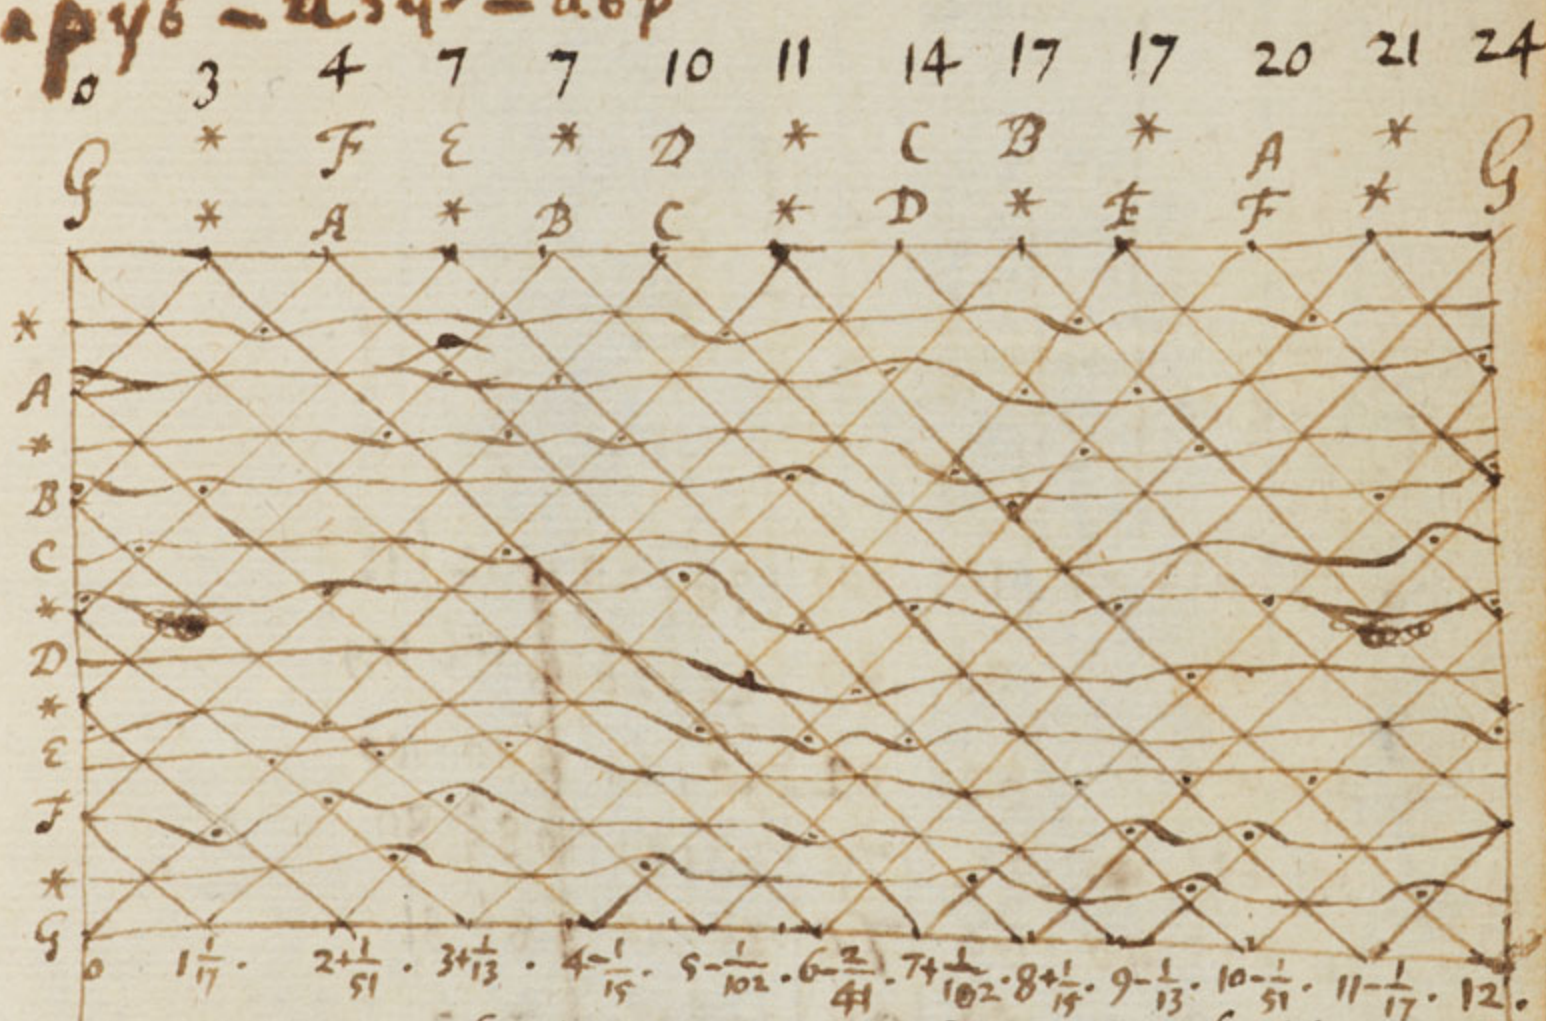 0 3 4 7 7 10 11 14 17 17 20 21 24
G * F E * D * C B * A * G
* A * B C * D * E F *
*
A
*
B
C
*
D
*
E
F
*
G
0 1 1/17 . 2+1/51 . 3+1/13 . 4-1/15 . 5-1/102 . 6-2/41 . 7+1/102 . 8+1/15 . 9-1/13 . 10-1/51 . 11-1/17 . 12 .